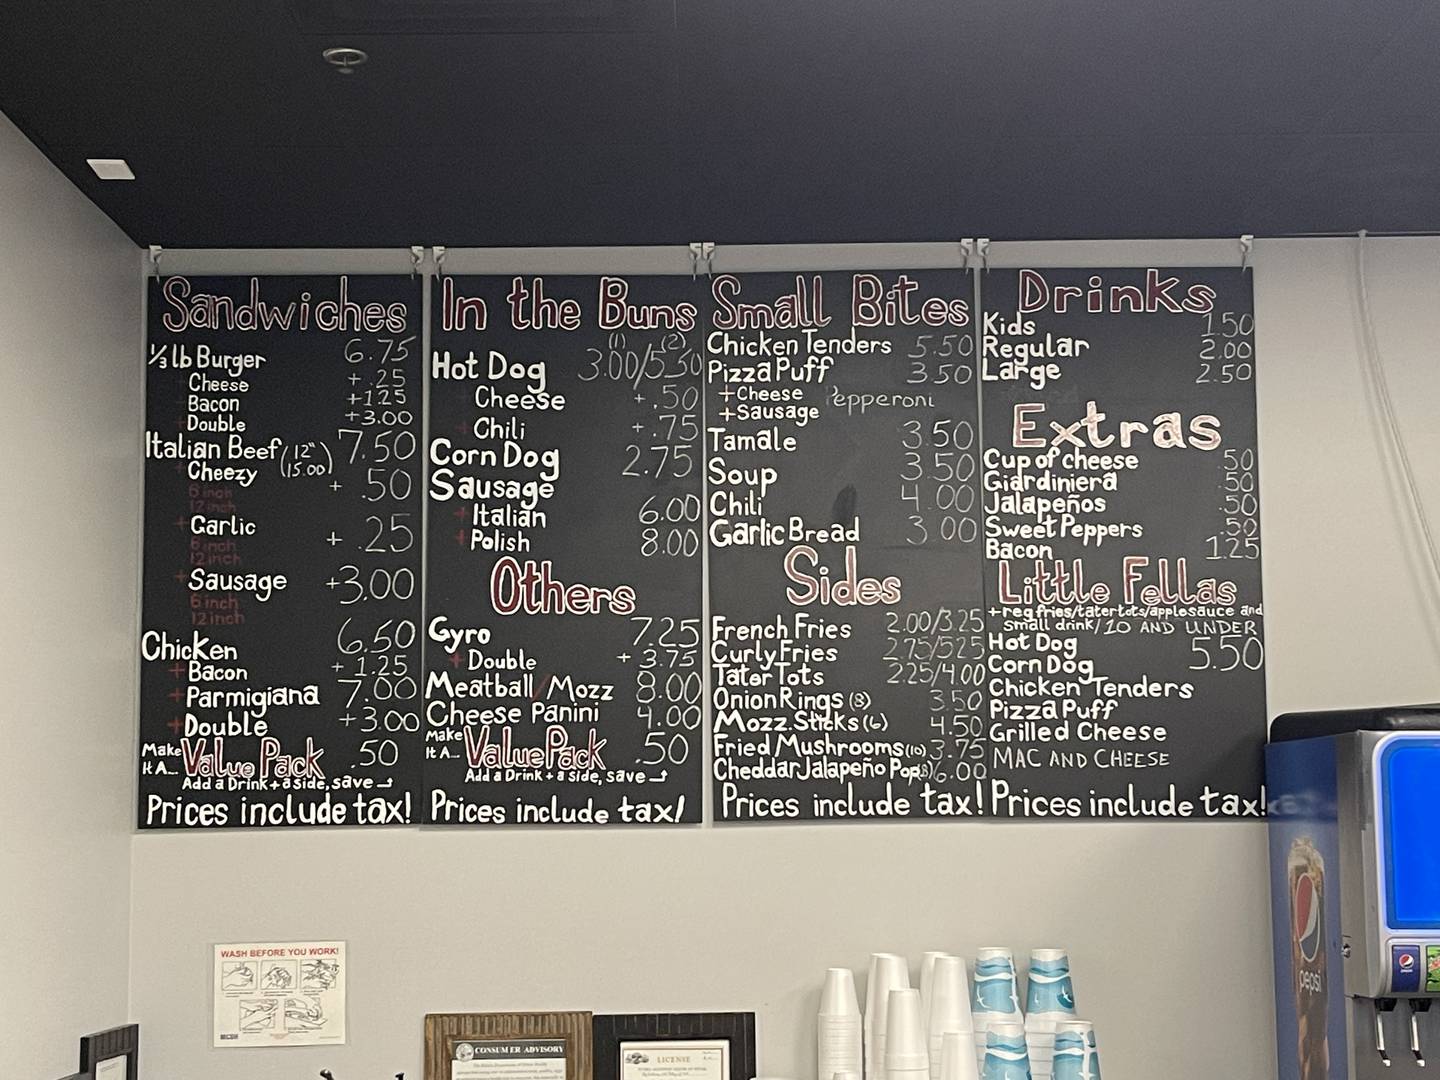 Sandwiches
1/3 lb Burger 6.75
Cheese +.25
Bacon +1.25
Double +3.00
Italian Beef (12" 15.00) 7.50
Cheezy + .50
6 inch
12 inch
+ Garlic + .25
6 inch
12 inch
+ Sausage +3.00
6 inch
12 inch
Chicken 6.50
+ Bacon +1.25
+ Parmigiana 7.00
+ Double +3.00
Make It A... Value Pack .50
Add a Drink + a side, save
Prices include tax!
In the Buns
(1) (2)
Hot Dog 3.00/5.50
Cheese +.50
Chili +.75
Corn Dog 2.75
Sausage
+ Italian 6.00
+ Polish 8.00
Others
Gyro 7.25
+ Double + 3.75
Meatball/Mozz 8.00
Cheese Panini 4.00
Make It A... Value Pack .50
Add a Drink + a side, save
Prices include tax!
Small Bites
Chicken Tenders 5.50
Pizza Puff 3.50
+Cheese Pepperoni
+Sausage
Tamale 3.50
Soup 3.50
Chili 4.00
Garlic Bread 3.00
Sides
French Fries 2.00/3.25
Curly Fries 2.75/5.25
Tater Tots 2.25/4.00
Onion Rings (8) 3.50
Mozz. Sticks (6) 4.50
Fried Mushrooms (10) 3.75
Cheddar Jalapeño Pops 6.00
Prices include tax!
Drinks
Kids 1.50
Regular 2.00
Large 2.50
Extras
Cup of cheese .50
Giardiniera .50
Jalapeños .50
Sweet Peppers .50
Bacon 1.25
Little Fellas
+reg fries/tater tots/applesauce and
small drink/10 AND UNDER
Hot Dog 5.50
Corn Dog
Chicken Tenders
Pizza Puff
Grilled Cheese
MAC AND CHEESE
Prices include tax!
WASH BEFORE YOU WORK!
CONSUMER ADVISORY
LICENSE
pepsi